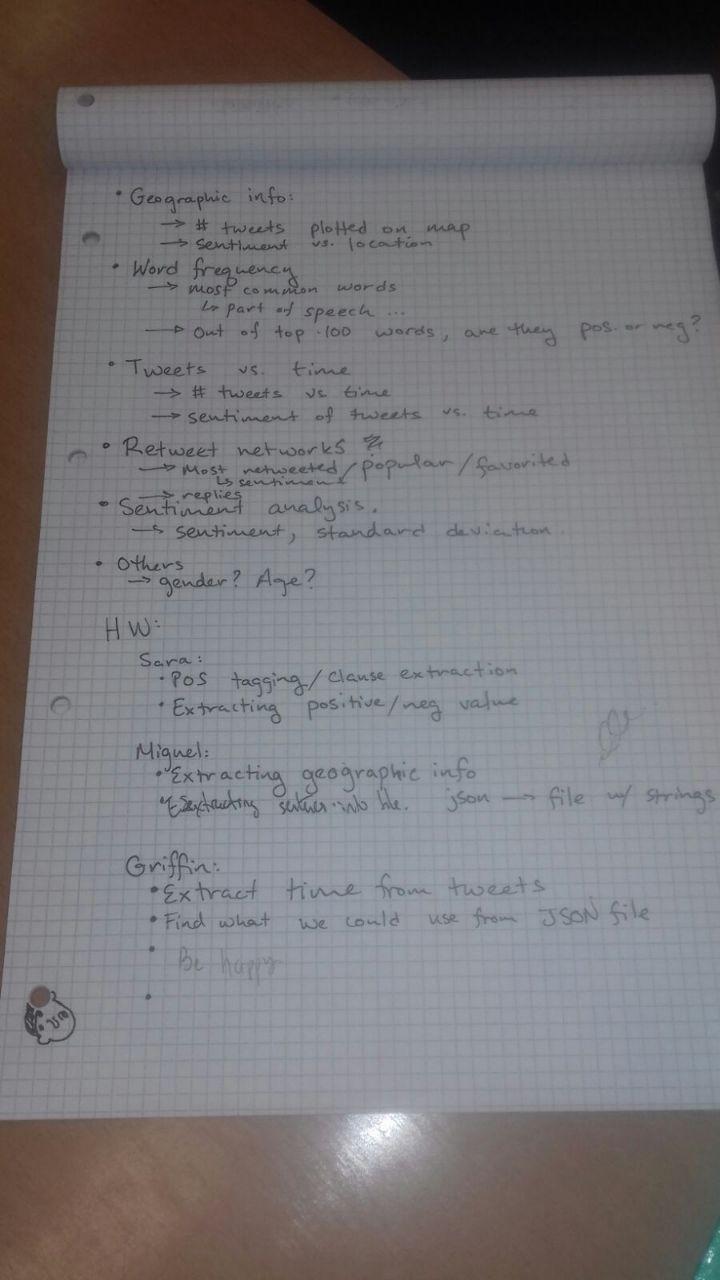 • Geographic info:
→ # tweets plotted on map
→ sentiment vs. location
• Word frequency
→ most common words
↳ part of speech ...
→ Out of top 100 words, are they pos. or neg?
• Tweets vs. time
→ # tweets vs time
→ sentiment of tweets vs. time
• Retweet networks
→ Most retweeted/popular/favorited
↳ sentiment
→ replies
• Sentiment analysis.
→ sentiment, standard deviation
• Others
→ gender? Age?
HW:
Sara:
• POS tagging/clause extraction
• Extracting positive/neg value
Miguel:
• Extracting geographic info
• Extracting into file. json → file w/ strings
Griffin:
• Extract time from tweets
• Find what we could use from JSON file
• Be happy
•